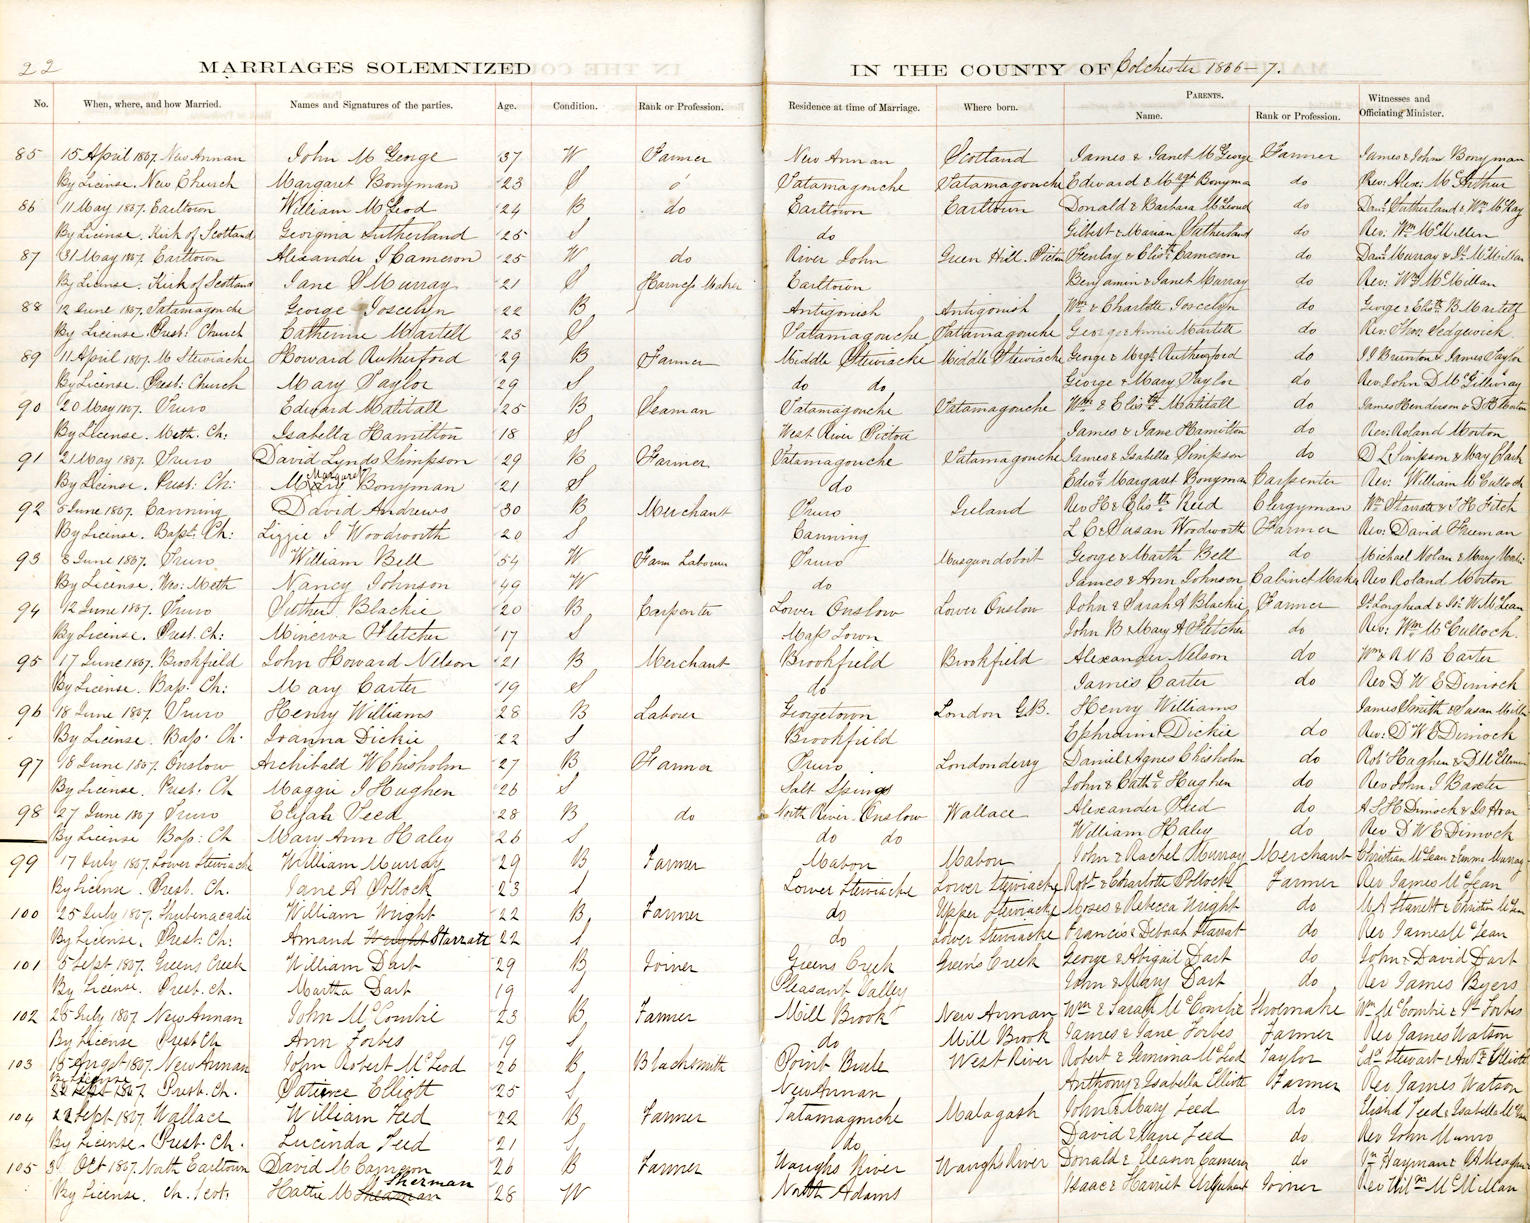 22
MARRIAGES SOLEMNIZED IN THE COUNTY OF Colchester 1866-7.
No. When, where, and how Married. Names and Signatures of the parties. Age. Condition. Rank or Profession. Residence at time of Marriage. Where born. PARENTS. Name. Rank or Profession. Witnesses and Officiating Minister.
85 15 April 1867. New Annan John McGeorge 37 W Farmer New Annan Scotland James & Janet McGeorge Farmer James & John Bonyman
By License. New Church Margaret Bonyman 23 S Tatamagouche Tatamagouche Edward & Margt Bonyman do Rev: Alex: McArthur
86 11 May 1867. Earltown William McLeod 24 B do Earltown Earltown Donald & Barbara McLeod do Danl Sutherland & Wm McKay
By License. Kirk of Scotland Georgina Sutherland 25 S do Gilbert & Marian Sutherland do Rev: Wm McMillen
87 31 May 1867. Earltown Alexander Cameron 25 W do River John Green Hill. Pictou Finlay & Elisth Cameron do Danl Murray & McMillan
By License. Kirk of Scotland Jane Murray 21 S Harness Maker Earltown Benjamin & Janet Murray do Rev: Wm McMillan
88 12 June 1867. Tatamagouche George Joscelyn 22 B Antigonish Antigonish Wm & Charlotte Joscelyn do George & Elisth B. Martell
By License Prest: Church Catherine Martell 23 S Tatamagouche Tatamagouche George & Annie Martell do Rev: Thos Sedgewick
89 11 April 1867. M Stewiacke Howard Rutherford 29 B Farmer Middle Stewiacke Middle Stewiacke George & Mrgt. Rutherford do & James Taylor
By License. Prest: Church Mary Taylor 29 S do do George & Mary Taylor do Rev John D McGillivray
90 20 May 1867. Truro Edward Matitall 25 B Seaman Tatamagouche Tatamagouche Wm & Elisth Matitall do James Henderson & Morton
By License. Meth. Ch: Isabella Hamilton 18 S West River Pictou James & Jane Hamilton do Rev: Roland Morton
91 21 May 1867. Truro David Lynds Simpson 29 B Farmer Tatamagouche Tatamagouche James & Isabella Simpson do D L Simpson & May Clark
By License. Prest: Ch: Mary Margaret Bonyman 21 S do Edwd & Margaret Bonyman Carpenter Rev: William McCulloch
92 5 June 1867. Canning David Andrews 30 B Merchant Truro Ireland Rev H & Elisth Reid Clergyman Wm Starratt & J H Fitch
By License. Bapst: Ch: Lizzie J Woodworth 20 S Canning L E & Susan Woodworth Farmer Rev: David Freeman
93 8 June 1867. Truro William Bell 54 W Farm Labourer Truro Musquodoboit George & Marth Bell do Michael Nolan & Mary
By License. Wes: Meth Nancy Johnson 49 W do James & Ann Johnson Cabinet Maker Rev Roland Morton
94 12 June 1867. Truro Luther Blackie 20 B Carpenter Lower Onslow Lower Onslow John & Sarah A Blackie Farmer Js. Longhead & Jno W McLean
By License. Prest. Ch: Minerva Fletcher 17 S Mass Town John B & Mary A Fletcher do Rev: Wm McCulloch.
95 17 June 1867. Brookfield John Howard Nelson 21 B Merchant Brookfield Brookfield Alexander Nelson do Wm & R N B Carter
By License. Bap: Ch: Mary Carter 19 S do James Carter do Rev D W E Dimock
96 18 June 1867. Truro Henry Williams 28 B Labour Georgetown London G.B. Henry Williams James Smith & Susan
By License. Bap. Ch. Joanna Dickie 22 S Brookfield Ephraim Dickie do Rev: D W E Dimock
97 18 June 1867. Onslow Archibald W Chisholm 27 B Farmer Truro Londonderry Daniel & Agnes Chisholm do Robt Hughen &
By License. Prest. Ch Maggie J Hughen 26 S Salt Springs John & Cathe Hughen do Rev John J Baxter
98 27 June 1867 Truro Elijah Teed 28 B do North River. Onslow Wallace Alexander Teed do A S H Dimock &
By License Bap: Ch Mary Ann Haley 26 S do do William Haley do Rev D W E Dimock
99 17 July 1867. Lower Stewiacke William Murray 29 B Farmer Mabou Mabou John & Rachel Murray Merchant Christian McLean & Emma Murray
By License Prest. Ch. Jane A Pollock 23 S Lower Stewiacke Lower Stewiacke Robt & Charlotte Pollock Farmer Rev James McLean
100 25 July 1867. Shubenacadie William Wright 22 B Farmer do Upper Stewiacke Moses & Rebecca Wright do M A Starrett & Christian McLean
By License. Prest: Ch: Amand Wright Starratt 22 S do Lower Stewiacke Francis & Deborah Starrat do Rev James McLean
101 5 Sept 1867. Greens Creek William Dart 29 B Joiner Greens Creek Green's Creek George & Abigail Dart do John & David Dart
By License. Prest. ch. Martha Dart 19 S Pleasant Valley John & Mary Dart do Rev James Byers
102 25 July 1867 New Annan John McCombie 23 B Farmer Mill Brook New Annan Wm & Sarah McCombie Shoemake Wm McCombie & Forbes
By License Prest Ch Ann Forbes 19 S do Mill Brook James & Jane Forbes Farmer Rev James Watson
103 15 Augst 1867. New Annan John Robert McLeod 26 B Blacksmith Point Brule West River Robert & Jemima McLeod Taylor Stewart & Elliott
22 Sept 1867. Prest. Ch. Patience Elliott 25 S New Annan Anthony & Isabella Elliott Farmer Rev James Watson
104 22 Sept 1867 Wallace William Teed 22 B Farmer Tatamagouche Malagash John & Mary Teed do Elisha Teed & Isabella
By License. Prest. Ch. Lucinda Teed 21 S do David & Jane Teed do Rev John Munro
105 3 Oct 1867. North Earltown David McCameron 26 B Farmer Waughs River Waugh's River Donald & Eleanor Cameron do Hayman &
By License. Ch. Scot: Hattie M Sheaman Sherman 28 W North Adams Isaac & Harriet Urquhart Joiner Rev Willm McMillan